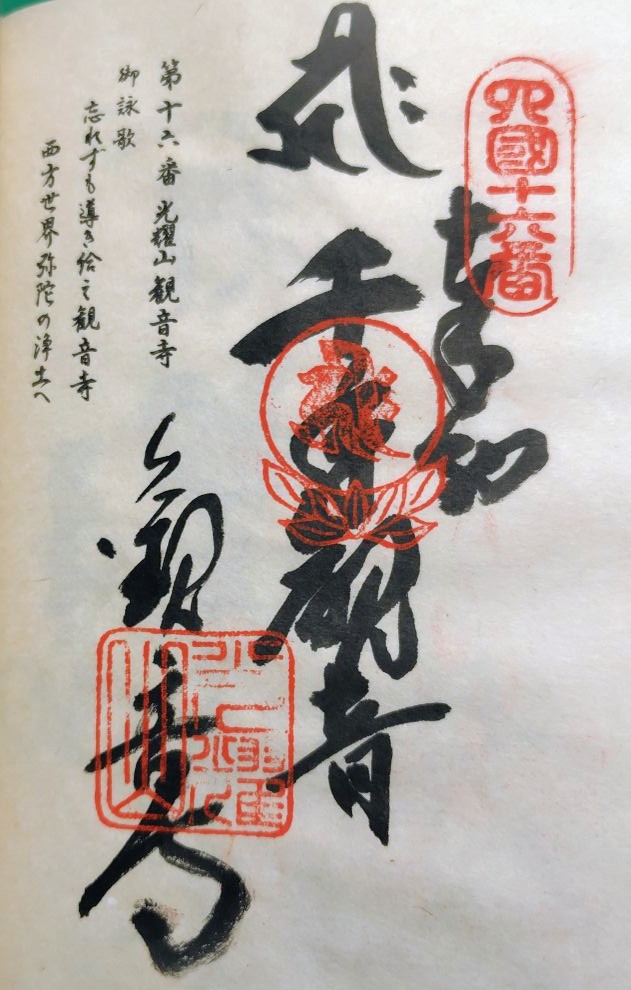 四國十六番
奉納
千手観音
観音寺
光耀山
第十六番 光耀山観音寺
御詠歌
忘れずも導き給え観音寺
西方世界弥陀の浄土へ